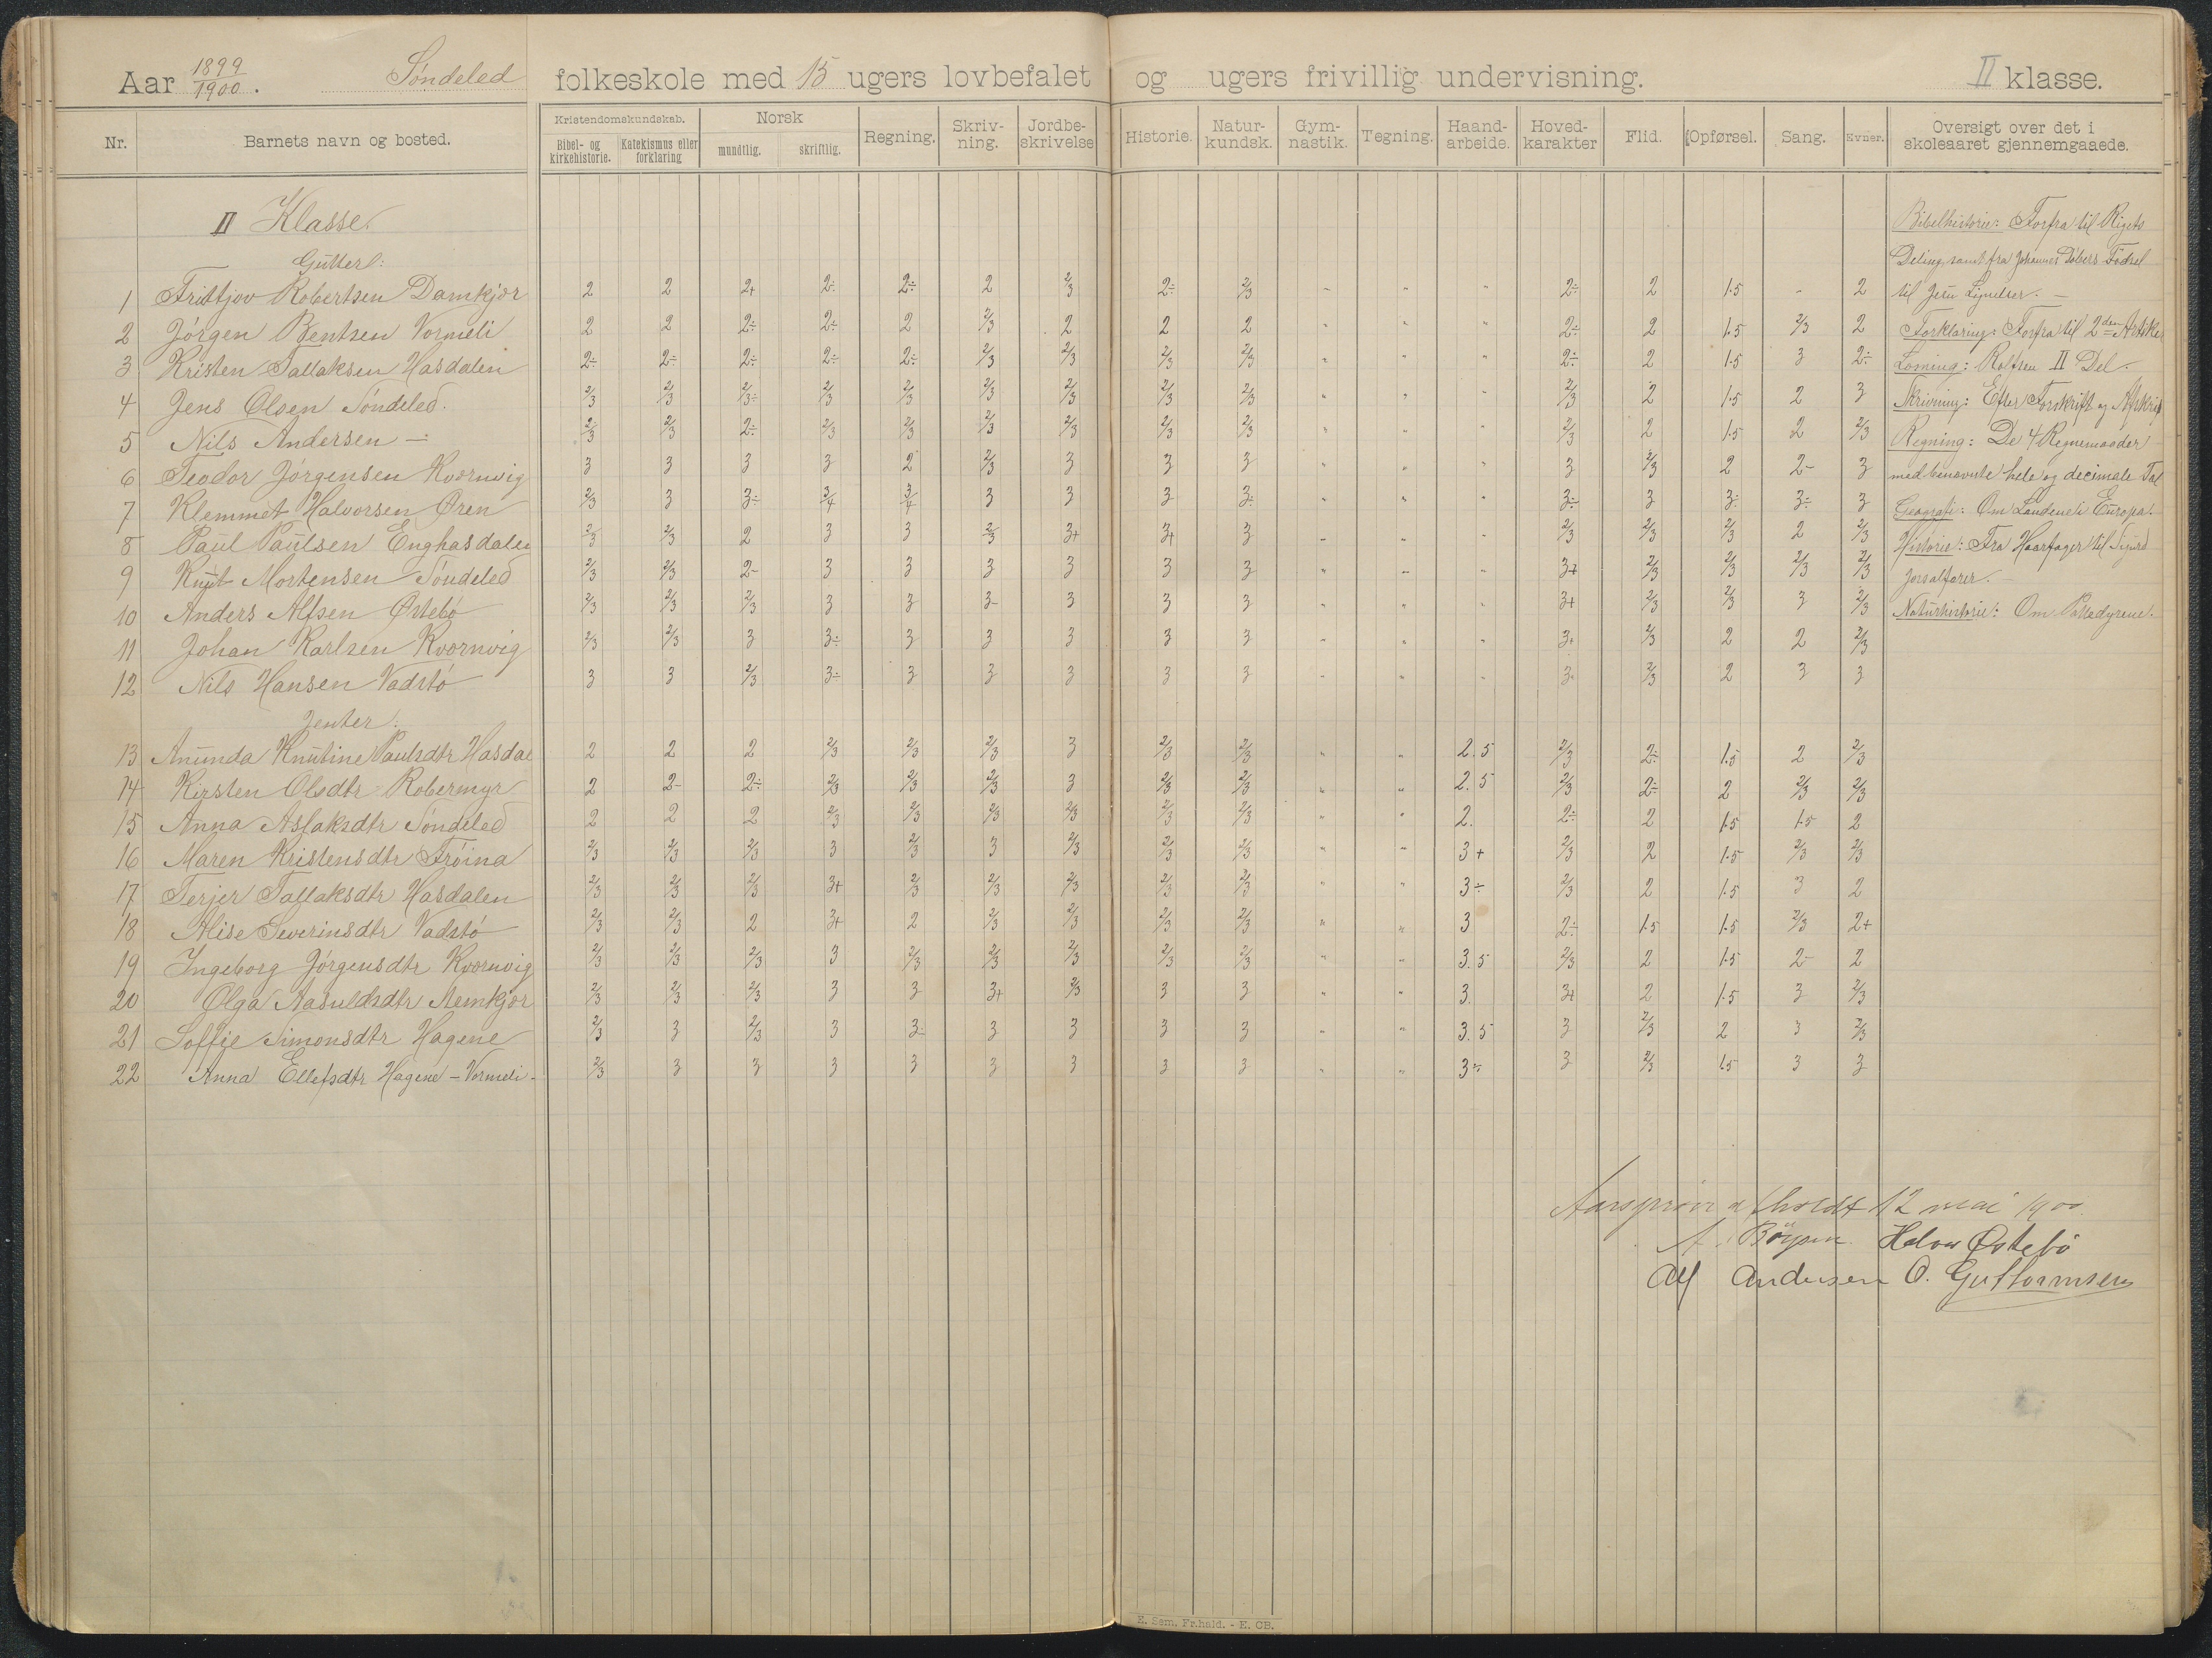 Aar 1899/1900. Søndeled folkeskole med 15 ugers lovbefalet og ugers frivillig undervisning. II klasse.
Nr. Barnets navn og bosted. Kristendomskundskab. Bibel- og kirkehistorie. Katekismus eller forklaring Norsk mundtlig. skriftlig. Regning. Skriv-ning. Jordbe-skrivelse Historie. Natur-kundsk. Gym-nastik. Tegning. Haand-arbeide. Hoved-karakter Flid. Opførsel. Sang. Evner. Oversigt over det i skoleaaret gjennemgaaede.
II Klasse.
Gutter:
1 Fritfjov Robertsen Damkjær 2 2 2+ 2÷ 2÷ 2 2/3 2÷ 2/3 " " " 2÷ 2 1.5 - 2
2 Jörgen Bentsen Vormeli 2 2 2÷ 2÷ 2 2/3 2 2 2 " " " 2÷ 2 1.5 2/3 2
3 Kristen Tallaksen Hasdalen 2÷ 2÷ 2÷ 2÷ 2÷ 2/3 2/3 2/3 2/3 " " " 2÷ 2 1.5 3 2÷
4 Jens Olsen Söndeled. 2/3 2/3 2/3÷ 2/3 2/3 2/3 2/3 2/3 2/3 " " " 2/3 2 1.5 2 3
5 Nils Andersen — 2/3 2/3 2÷ 2/3 2/3 2/3 2/3 2/3 2/3 " " " 2/3 2 1.5 2 2/3
6 Teodor Jörgensen Kvornvig 3 3 3 3 2 2/3 3 3 3 " " " 3 2/3 2 2- 3
7 Klemmet Halvorsen Øren 2/3 3 3÷ 3/4 3/4 3 3 3 3÷ " " " 3÷ 3 3÷ 3÷ 3
8 Paul Paulsen Enghasdalen 2/3 2/3 2 3 3 2/3 3+ 3+ 3 " " " 2/3 2/3 2/3 2 2/3
9 Knut Mortensen Söndeled 2/3 2/3 2- 3 3 3 3 3 3 " " " 3+ 2/3 2/3 2/3 2/3
10 Anders Alfsen Østebö 2/3 2/3 2/3 3 3 3- 3 3 3 " " " 3+ 2/3 2/3 3 2/3
11 Johan Karlsen Kvornvig 2/3 2/3 3 3÷ 3 3 3 3 3 " " " 3+ 2/3 2 2 2/3
12 Nils Hansen Vadstö 3 3 2/3 3÷ 3 3 3 3 3 " " " 3- 2/3 2 3 3
Jenter:
13 Anunda Knutine Paulsdtr Hasdal 2 2 2 2/3 2/3 2/3 3 2/3 2/3 " " 2.5 2/3 2÷ 1.5 2 2/3
14 Kirsten Olsdtr Robermyr 2 2- 2÷ 2/3 2/3 2/3 3 2/3 2/3 " " 2.5 2/3 2÷ 2 2/3 2/3
15 Anna Aslaksdtr Söndeled 2 2 2 2/3 2/3 2/3 2/3 2/3 2/3 " " 2. 2÷ 2 1.5 1.5 2
16 Maren Kristensdtr Fröina 2/3 2/3 2/3 3 2/3 3 2/3 2/3 2/3 " " 3+ 2/3 2 1.5 2/3 2/3
17 Terjer Tallaksdtr Hasdalen 2/3 2/3 2/3 3+ 2/3 2/3 2/3 2/3 2/3 " " 3÷ 2/3 2 1.5 3 2
18 Alise Severinsdtr Vadstö 2/3 2/3 2 3+ 2 2/3 2/3 2/3 2/3 " " 3 2÷ 1.5 1.5 2/3 2+
19 Ingeborg Jörgensdtr Kvornvig 2/3 2/3 2/3 3 2/3 2/3 2/3 2/3 2/3 " " 3.5 2/3 2 1.5 2- 2
20 Olga Aasuldsdtr Nemkjær 2/3 2/3 2/3 3 3 3+ 2/3 3 3 " " 3. 3+ 2 1.5 3 2/3
21 Soffie Simonsdtr Hagene 2/3 3 2/3 3 3÷ 3 3 3 3 " " 3.5 3 2/3 2 3 2/3
22 Anna Ellefsdtr Hagene - Vormeli - 2/3 3 3 3 3 3 3 3 3 " " 3÷ 3 2/3 1.5 3 3
Bibelhistorie: Forfra til Rigets
Deling, samt fra Johannes Döbers Födsel
til Jesu Lignelser. —
Forklaring: Forfra til 2den Artikel
Læsning: Rolfsen II Del.
Skrivning: Efter Forskrift og Afskrift
Regning: De 4 Regnemaader
med benævnte hele og decimale Tal
Geografi: Om Landene i Europa.
Historie: Fra Haarfager til Sigurd
Jorsalfarer.
Naturhistorie: Om Pattedyrene.
Aarsprøve afholdt 12 mai 1900.
A. Böysen Halvor Østebö
Alf Andersen O. Guttormsen
E. Sem. Fr.hald. - E. CB.